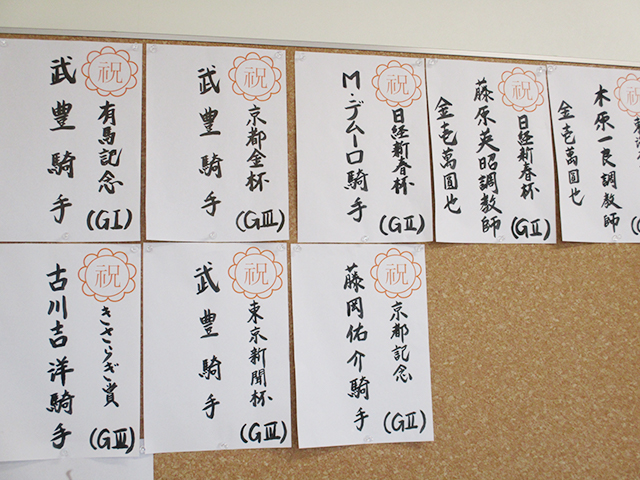 祝
有馬記念
(GI)
武豊騎手
祝
京都金杯
(GⅢ)
武豊騎手
祝
日経新春杯
(GⅡ)
M・デムーロ騎手
祝
日経新春杯
(GⅡ)
藤原英昭調教師
金壱萬圓也
祝
木原一良調教師
金壱萬圓也
祝
きさらぎ賞
(GⅢ)
古川吉洋騎手
祝
東京新聞杯
(GⅢ)
武豊騎手
祝
京都記念
(GⅡ)
藤岡佑介騎手